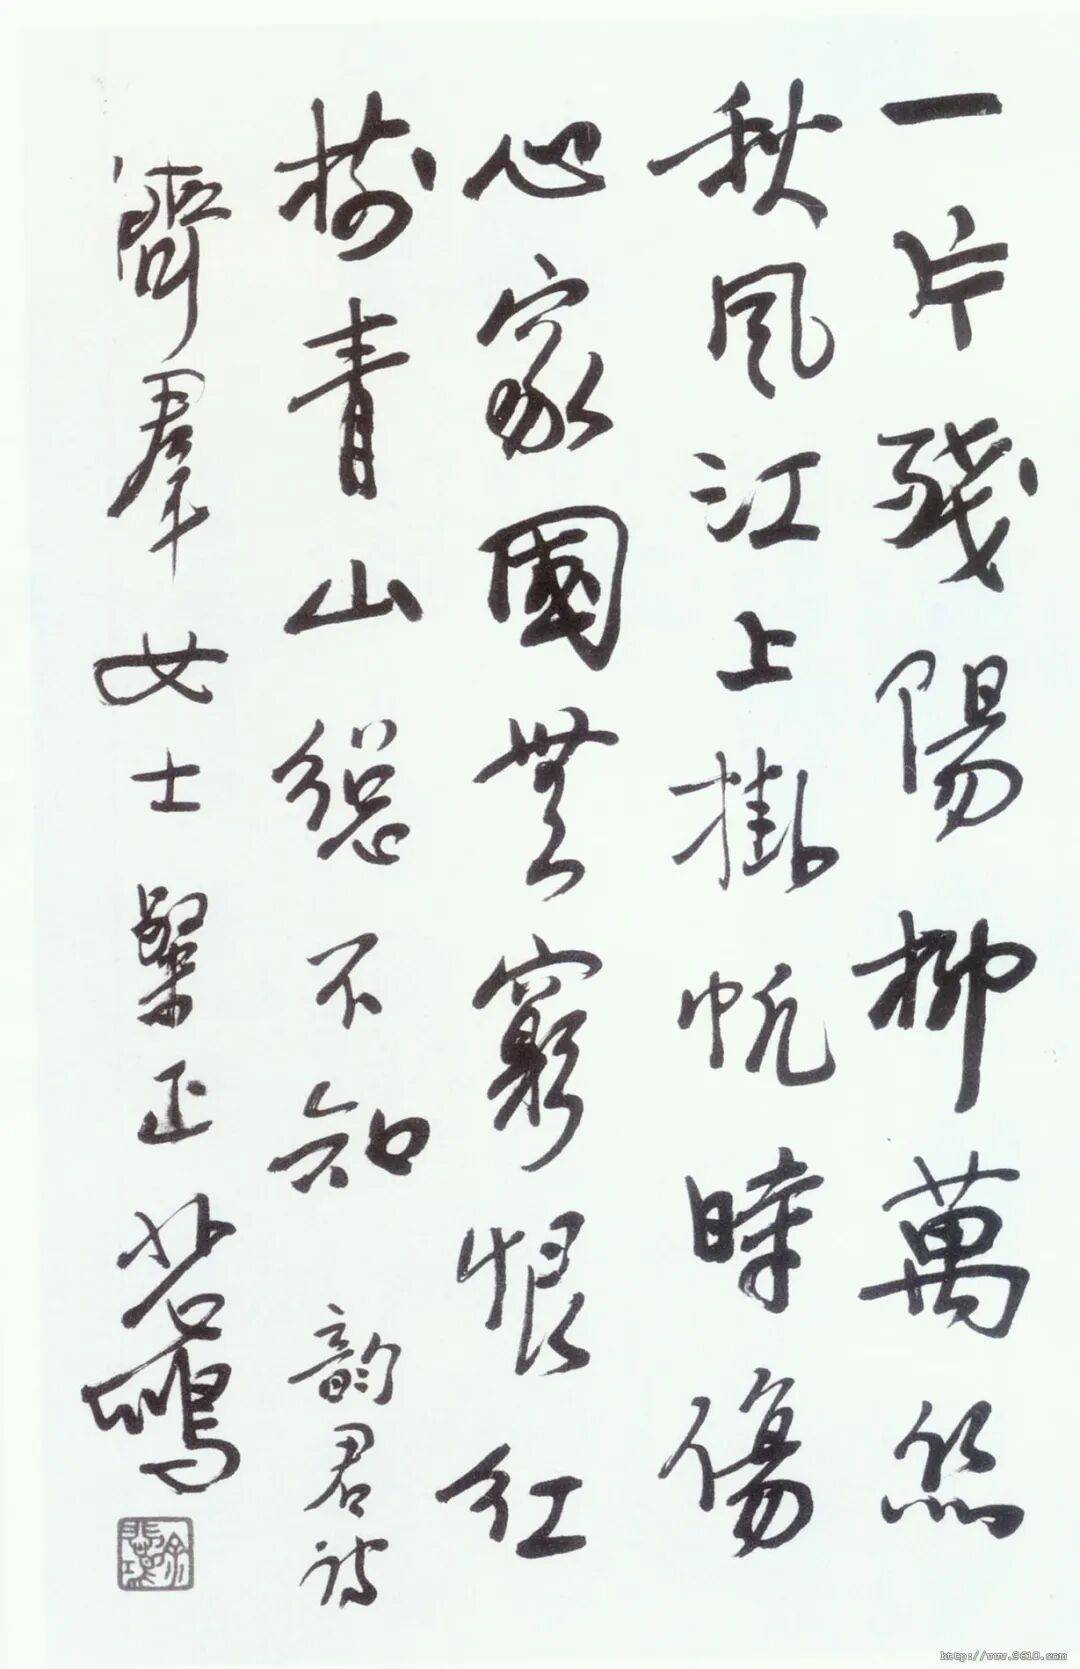 一片殘陽柳萬絲
秋風江上掛帆時傷
心家國無窮恨紅
樹青山總不知 韵君詩
濟羣女士 正 悲鴻
http://www.9610.com